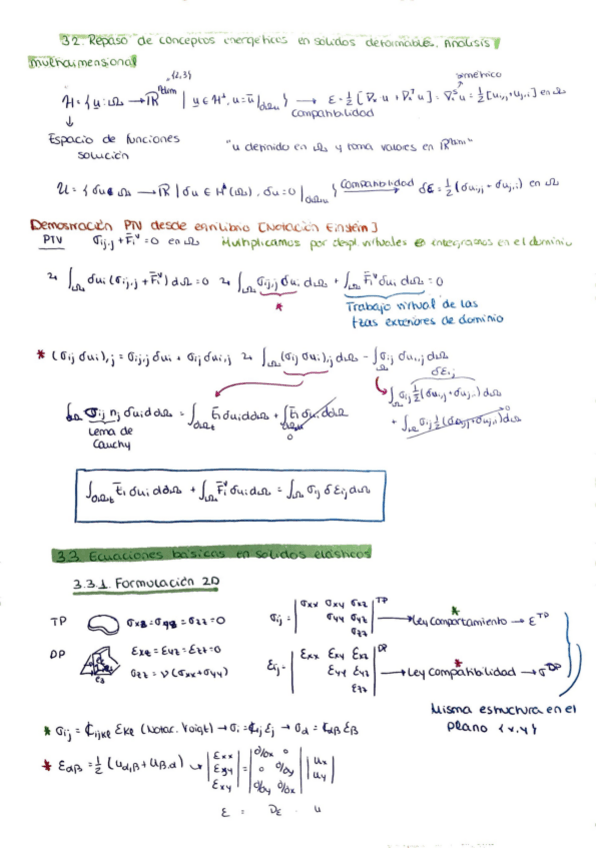 3.2. Repaso de conceptos energéticos en sólidos deformables. Análisis
multidimensional
{2,3}
simétrico
H = { u: Ω → ℝ^dim | u ∈ H¹, u = ū |∂Ωu } → ε = ½ [∇ₓu + ∇ₓᵀu] = ∇ₓˢu = ½ [ui,j + uj,i] en Ω
compatibilidad
Espacio de funciones solución
"u definido en Ω y toma valores en ℝ^dim"
U = { δu: Ω → ℝ | δu ∈ H¹(Ω), δu = 0 |∂Ωu } Compatibilidad → δε = ½ (δui,j + δuj,i) en Ω
Demostración PTV desde equilibrio [Notación Einstein]
PTV σij,j + F̄iᵛ = 0 en Ω Multiplicamos por despl. virtuales e integramos en el dominio
∫Ω δui (σij,j + F̄iᵛ) dΩ = 0 ↝ ∫Ω σij,j δui dΩ + ∫Ω F̄iᵛ δui dΩ = 0
*
Trabajo virtual de las
fzas exteriores de dominio
* (σij δui),j = σij,j δui + σij δui,j ↝ ∫Ω (σij δui),j dΩ - ∫Ω σij δui,j dΩ
δεi,j
∫Ω σij ½ (δui,j + δuj,i) dΩ
∫∂Ω σij nj δui d∂Ω = ∫∂Ωt t̄i δui d∂Ω + ∫ t̄i δui d∂Ω
0
+ ∫Ω σij ½ (δui,j - δuj,i) dΩ
0
Lema de
Cauchy
∫∂Ωt t̄i δui d∂Ω + ∫Ω F̄iᵛ δui dΩ = ∫Ω σij δεij dΩ
3.3. Ecuaciones básicas en sólidos elásticos
3.3.1. Formulación 2D
TP σxz = σyz = σzz = 0
σij = | σxx σxy σxz |ᵀᴾ
σyy σyz
σzz
* Ley comportamiento → εᵀᴾ
DP εxz = εyz = εzz = 0
σzz = ν (σxx + σyy)
εij = | εxx εxy εxz |ᴰᴾ
εyy εyz
εzz
* Ley compatibilidad → σᴰᴾ
Misma estructura en el
plano {x,y}
* σij = ℂijkl εkl (Notac. Voigt) → σi = ℂij εj → σα = ℂαβ εβ
* εαβ = ½ (uα,β + uβ,α) ↝ | εxx | = | ∂/∂x 0 | | ux |
| εyy | | 0 ∂/∂y | | uy |
| εxy | | ∂/∂y ∂/∂x |
ε = Dε · u